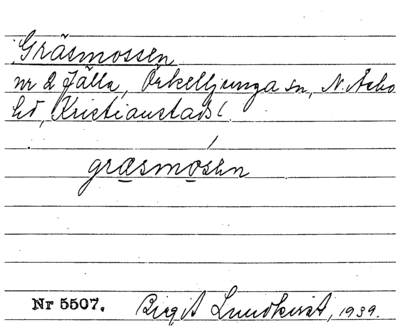 Gräsmossen
nr 2 Jälla, Örkelljunga sn, N. Åsbo
hd, Kristianstads l.
græsmosen
Nr 5507. Birgit Lundkvist, 1939.